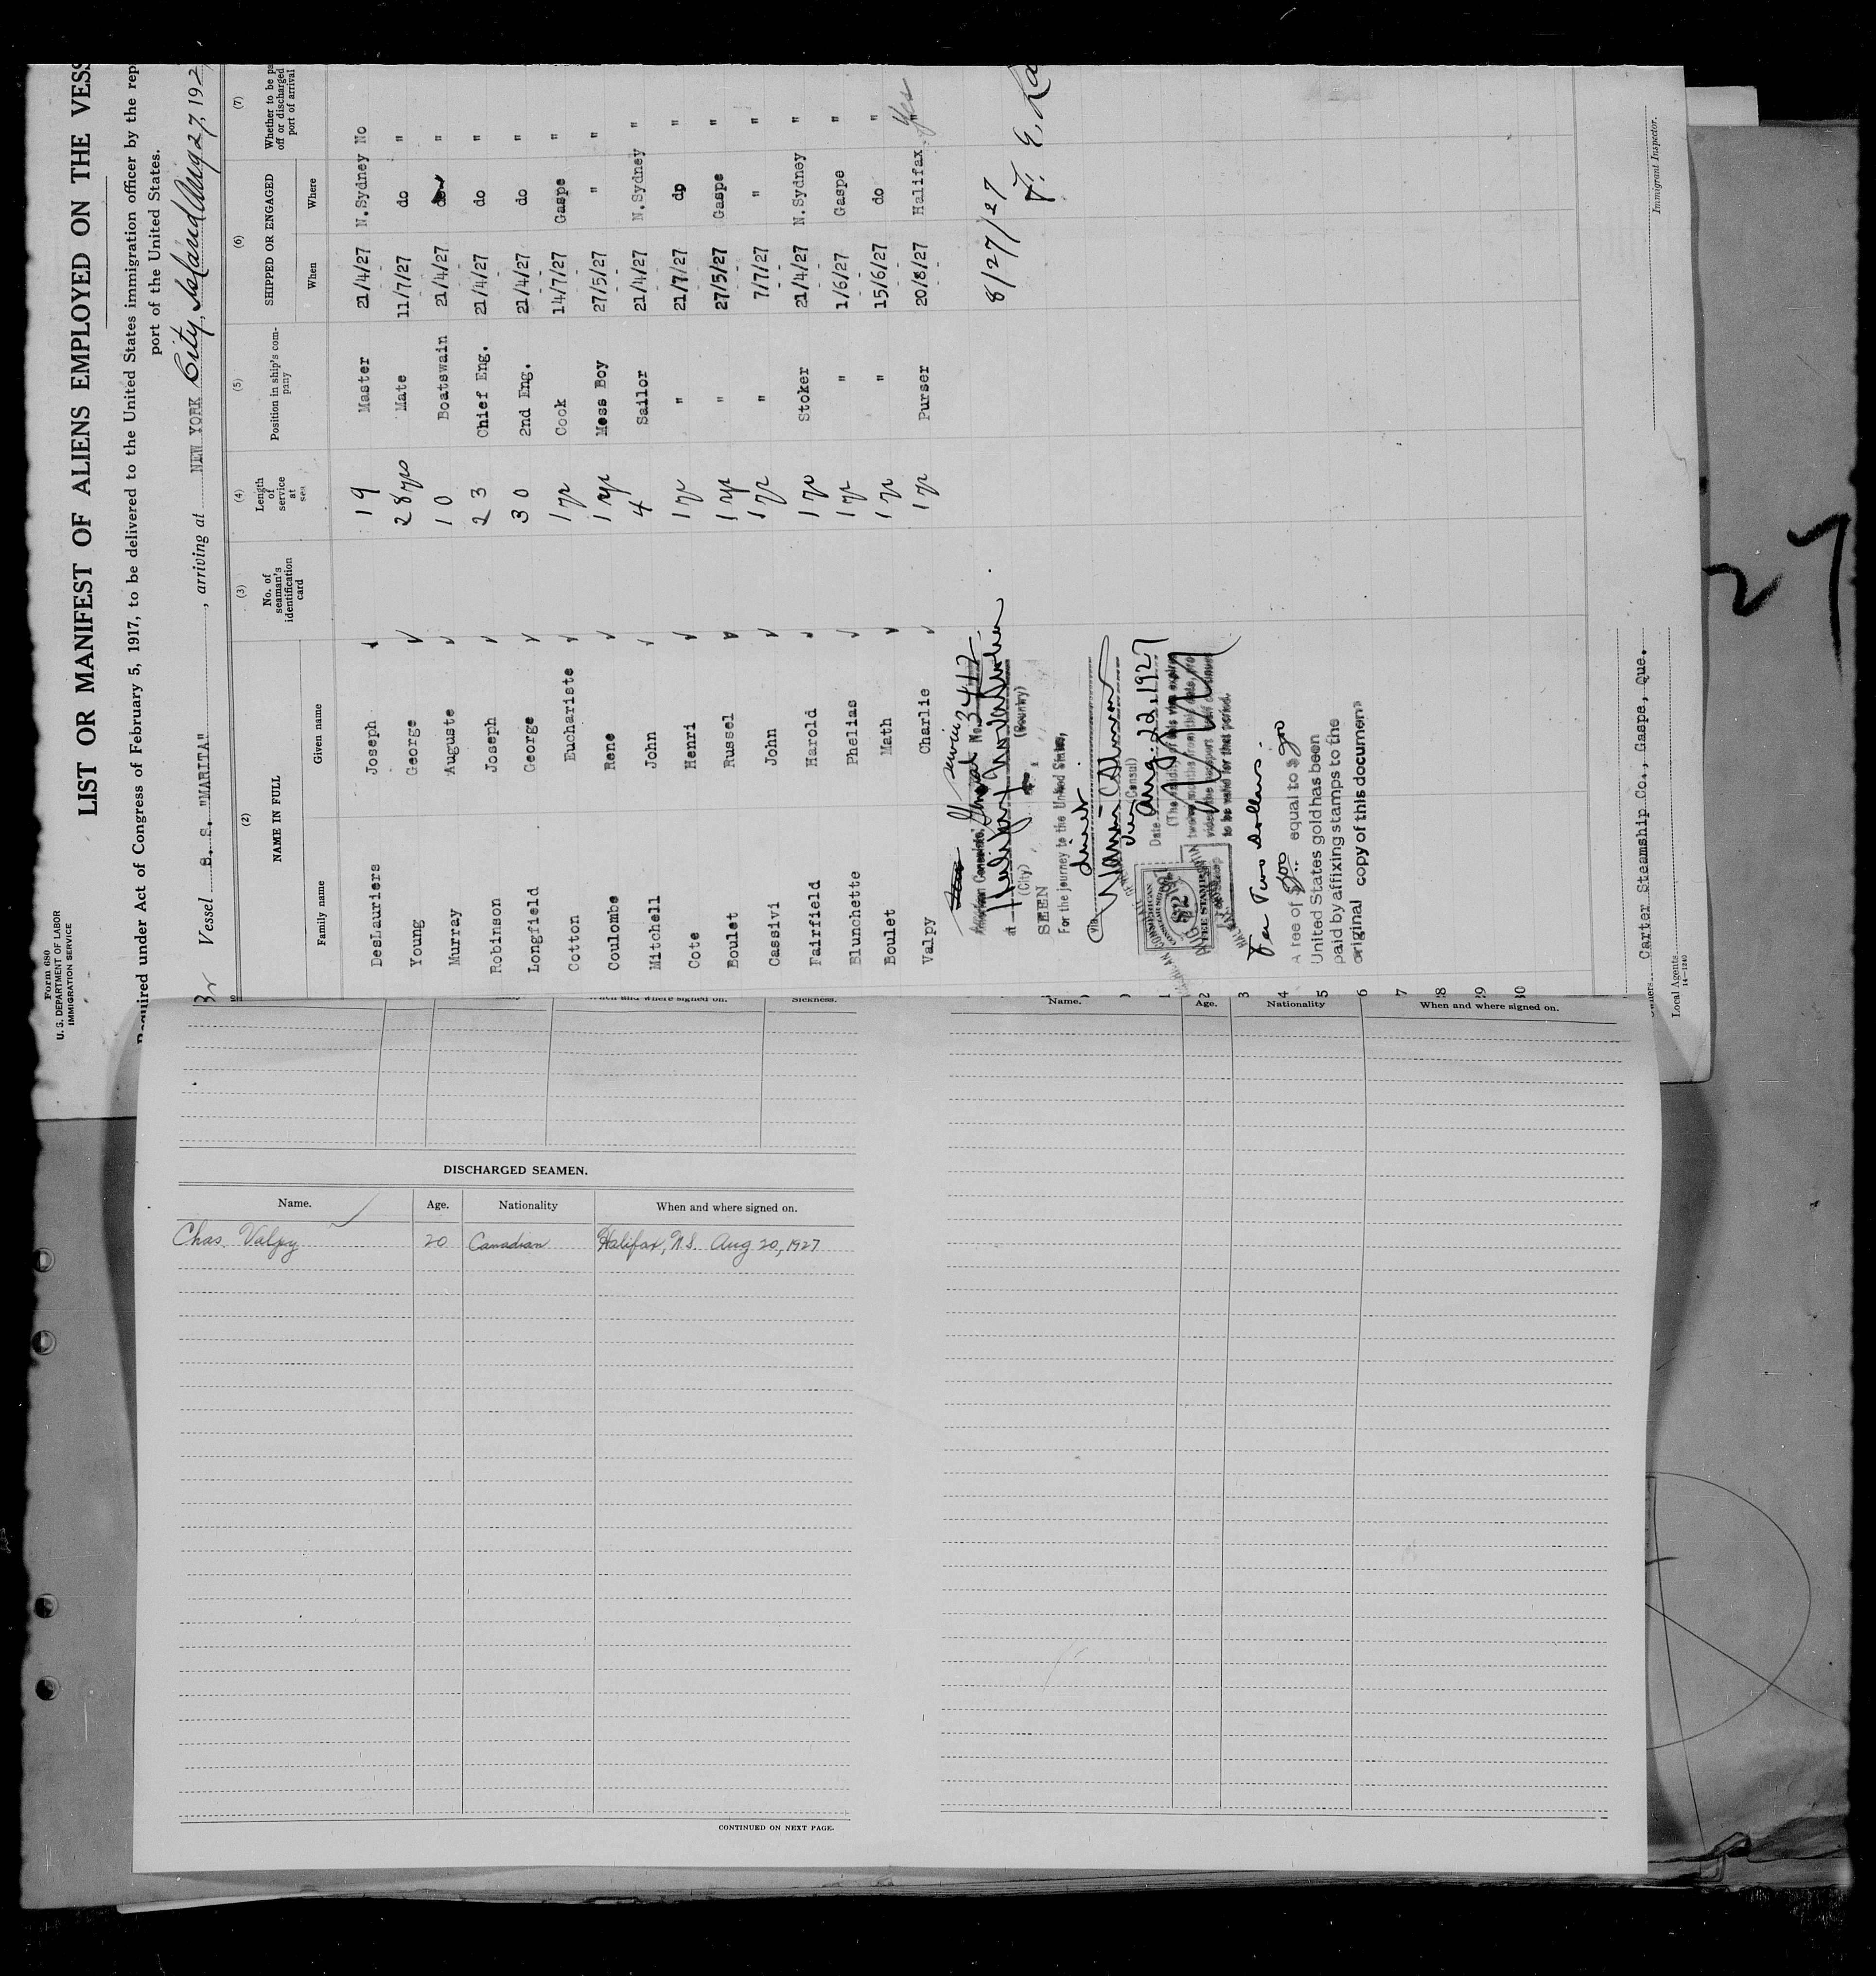 Form 680
U. S. DEPARTMENT OF LABOR
IMMIGRATION SERVICE
LIST OR MANIFEST OF ALIENS EMPLOYED ON THE VESS
Required under Act of Congress of February 5, 1917, to be delivered to the United States immigration officer by the rep
port of the United States.
Vessel S. S. "MARITA", arriving at NEW YORK City, Island Aug 27, 192
(2) (3) (4) (5) (6) (7)
NAME IN FULL
Family name Given name
No. of seaman's identification card
Length of service at sea
Position in ship's company
SHIPPED OR ENGAGED
When Where
Whether to be pa
off or discharged
port of arrival
DesLauriers Joseph 19 Master 21/4/27 N.Sydney No
Young George 28 yrs Mate 11/7/27 do "
Murray Auguste 10 Boatswain 21/4/27 "
Robinson Joseph 23 Chief Eng. 21/4/27 do "
Longfield George 30 2nd Eng. 21/4/27 do "
Cotton Euchariste 1 yr Cook 14/7/27 Gaspe "
Coulombe Rene 1 yr Mess Boy 27/5/27 " "
Mitchell John 4 Sailor 21/4/27 N.Sydney "
Cote Henri 1 yr " 21/7/27 do "
Boulet Russel 1 yr " 27/5/27 Gaspe "
Cassivi John 1 yr " 7/7/27 " "
Fairfield Harold 1 yr Stoker 21/4/27 N.Sydney "
Blunchette Phelias 1 yr " 1/6/27 Gaspe "
Boulet Math 1 yr " 15/6/27 do "
Valpy Charlie 1 yr Purser 20/8/27 Halifax Yes
8/27/27
American Consulate General No. 3412
Service
at Halifax, Nova Scotia
(City) (Country)
SEEN
For the journey to the United States,
via direct
Consul)
Date Aug. 22, 1927
(The validity of this visa expires
twelve months from this date, pro-
vided the passport itself continues
to be valid for that period.
$2
FEE STAMP
Fee Two dollars.
A fee of $ 2.00 equal to $ 2.00
United States gold has been
paid by affixing stamps to the
original copy of this documen"
3
4
5
6
7
28
29
30
Carter Steamship Co., Gaspe, Que.
Local Agents
14—1240
Immigrant Inspector.
27
When and where signed on. Sickness.
Name. Age. Nationality When and where signed on.
DISCHARGED SEAMEN.
Name. Age. Nationality When and where signed on.
Chas. Valpy 20 Canadian Halifax, N.S. Aug 20, 1927
CONTINUED ON NEXT PAGE.